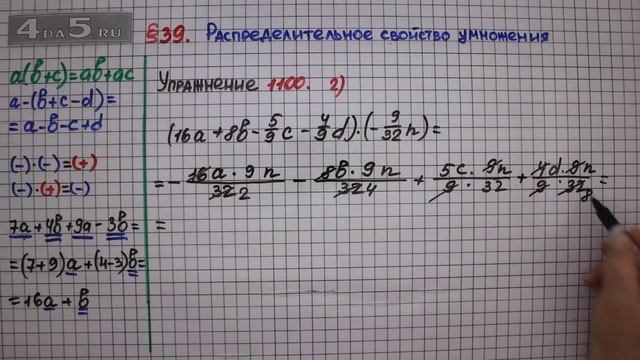 4DA5.RU
§39. Распределительное свойство умножения
a(b+c)=ab+ac
a-(b+c-d)=
=a-b-c+d
(-)·(-)=(+)
(-)·(+)=(-)
7a+4b+9a-3b=
=(7+9)a+(4-3)b=
=16a+b
Упражнение 1100. 2)
(16a+8b-5/9c-4/9d)·(-9/32n)=
=-16a·9n/32 2-8b·9n/32 4+5c·9n/9·32+4d·9n/9·32 8=
=